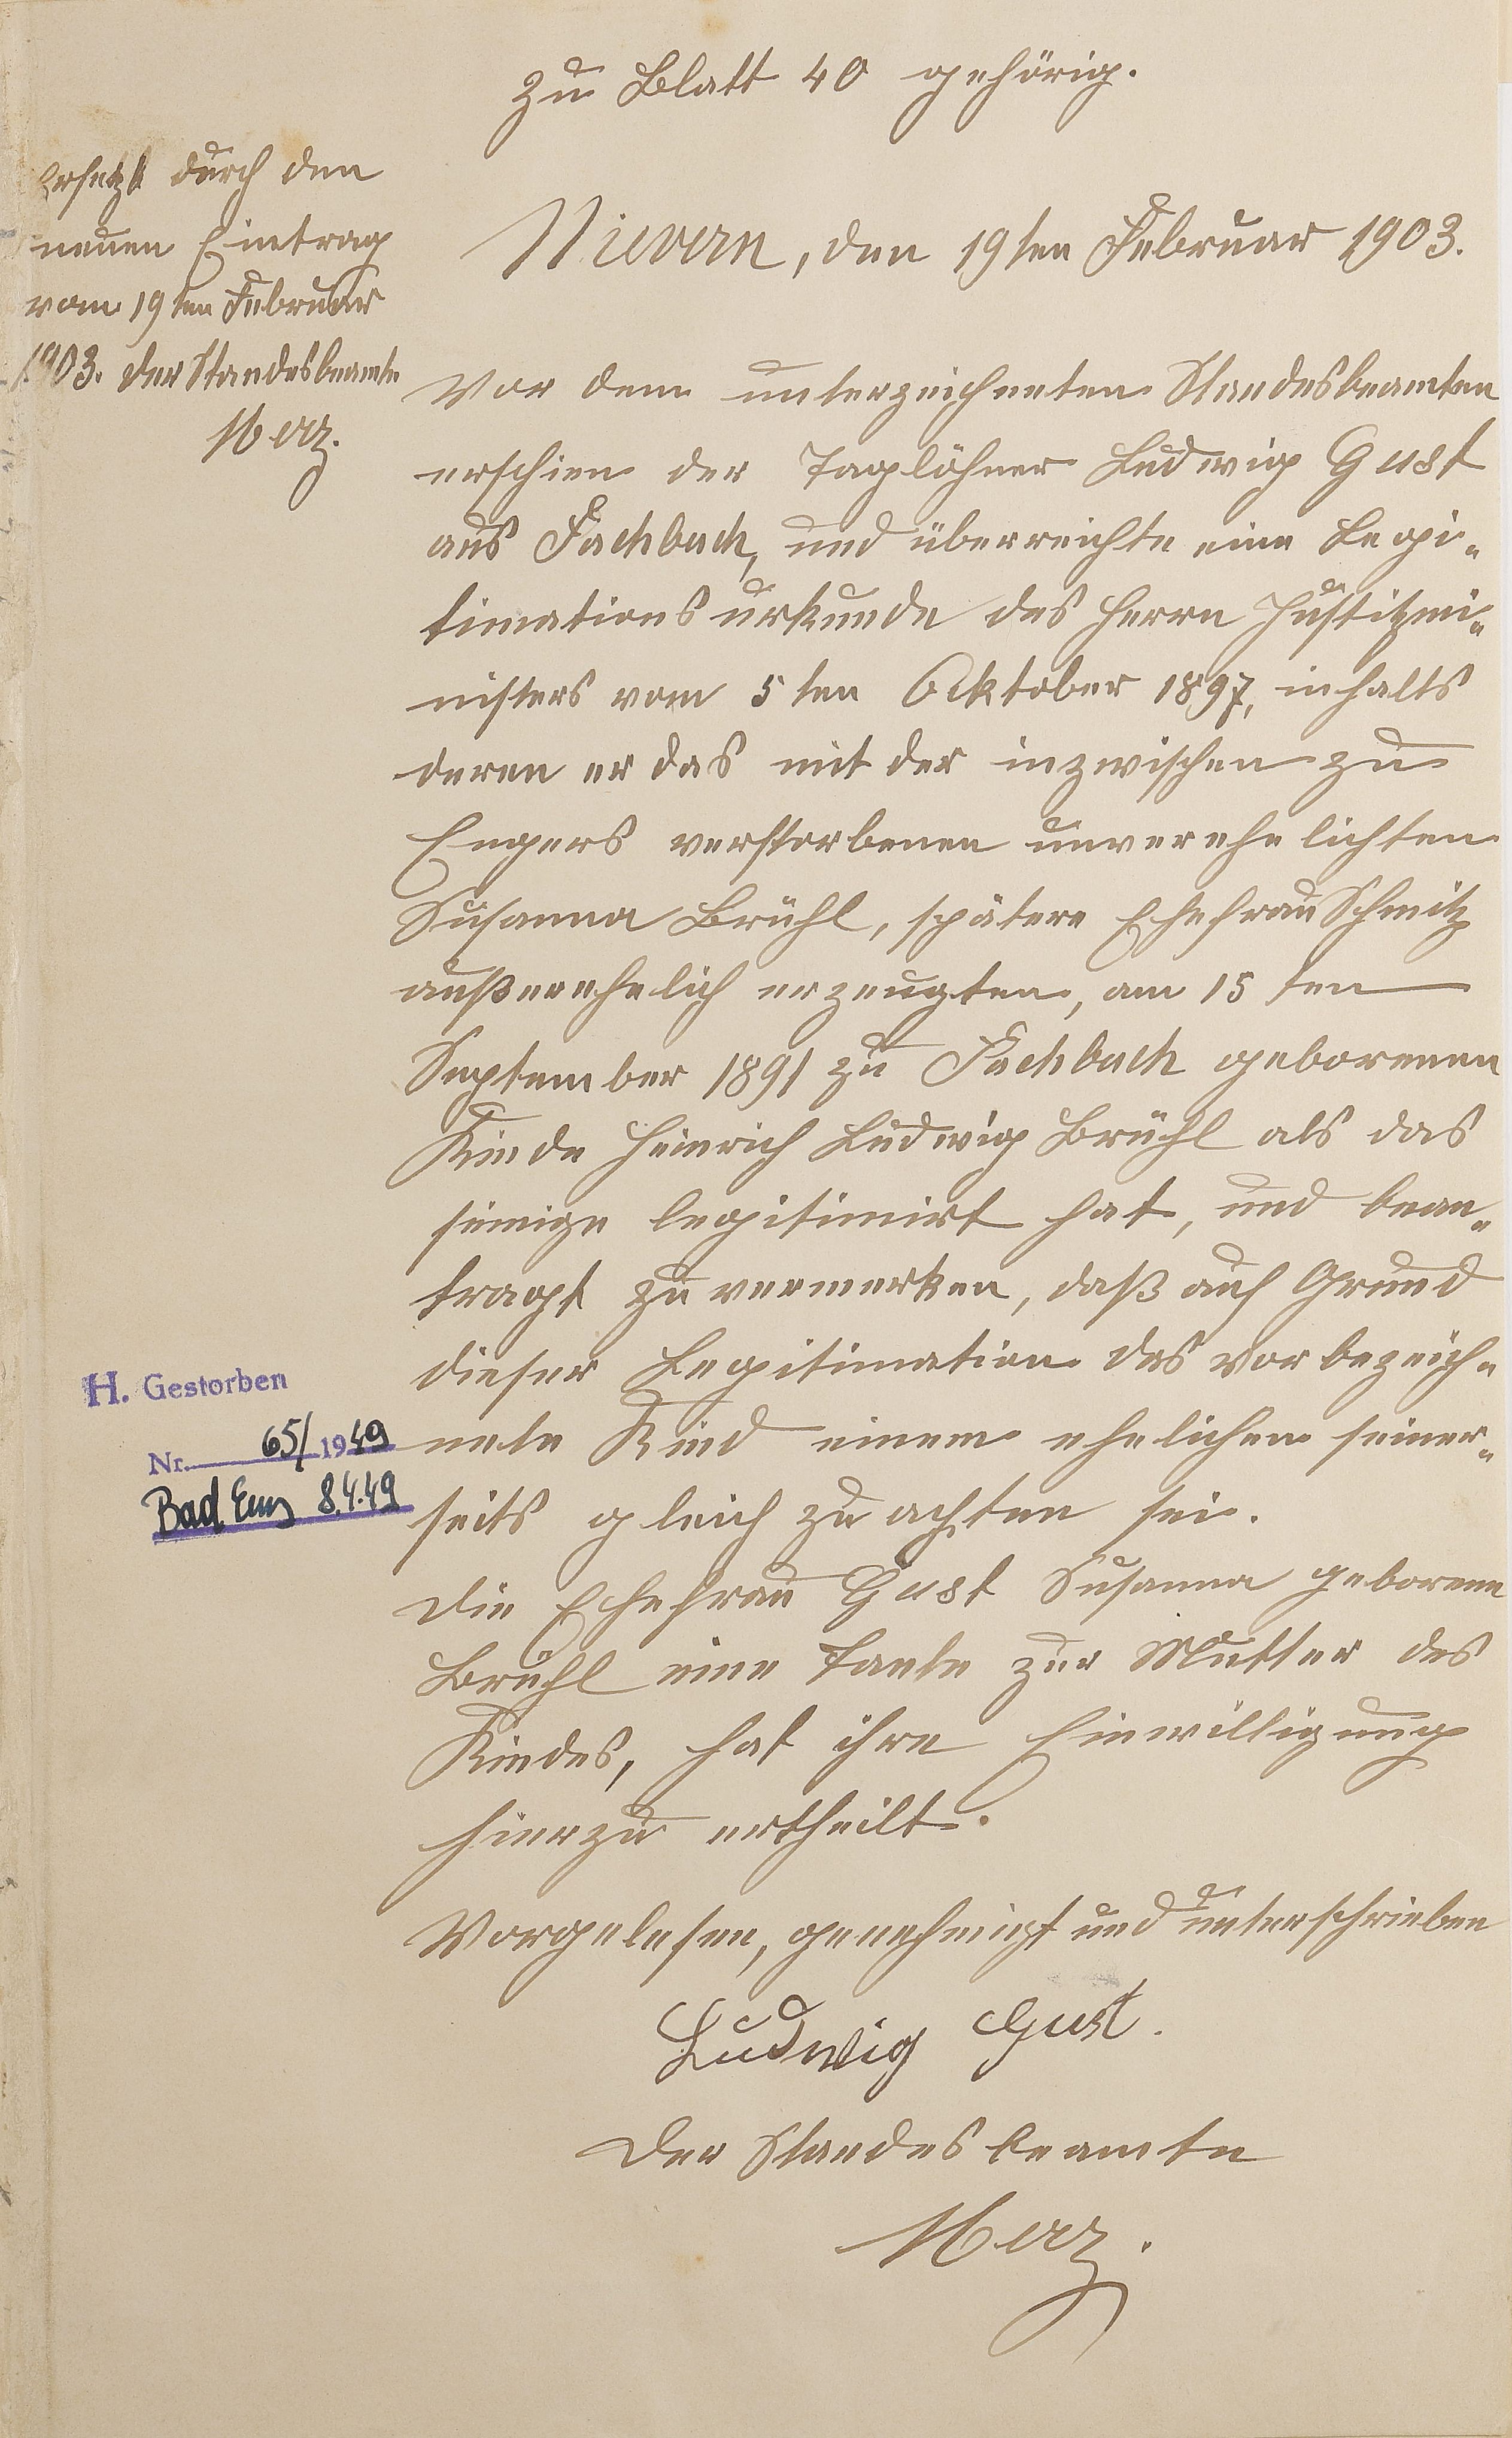 zu Blatt 40 gehörig.
Ersetzt durch den
neuen Eintrag
vom 19ten Februar
1903. Der Standesbeamte
Merz.
Nievern, den 19ten Februar 1903.
Vor dem unterzeichneten Standesbeamten
erschien der Taglöhner Ludwig Gust
aus Fachbach, und überreichte eine Legi-
timationsurkunde des Herrn Justizmi-
nisters vom 5ten Oktober 1897, inhalts
deren er das mit der inzwischen zu
Engers verstorbenen unverehelichten
Susanna Brühl, spätere Ehefrau Schmitz
außerehelich erzeugten, am 15ten
September 1891 zu Fachbach geborenen
Kinde Heinrich Ludwig Brühl als das
seinige legitimirt hat, und bean-
tragt zu vermerken, daß auf Grund
dieser Legitimation das vorbezeich-
nete Kind einem ehelichen seiner-
seits gleich zu achten sei.
Die Ehefrau Gust Susanna geborene
Brühl eine Tante zur Mutter des
Kindes, hat ihre Einwilligung
hierzu ertheilt.
Vorgelesen, genehmigt und unterschrieben
Ludwig Gust.
Der Standesbeamte
Merz.
H. Gestorben
Nr. 65/1949
Bad Ems 8.4.49